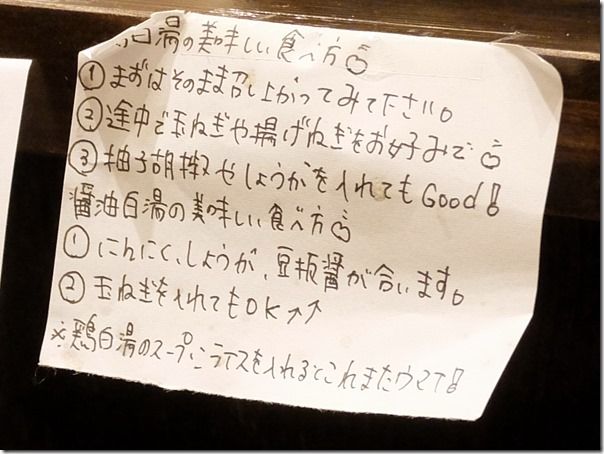 鶏白湯の美味しい食べ方
①まずはそのまま召し上がってみて下さい。
②途中で玉ねぎや揚げねぎをお好みで
③柚子胡椒やしょうがを入れてもGood!
醤油白湯の美味しい食べ方
①にんにく、しょうが、豆板醤が合います。
②玉ねぎを入れてもOK↑↑
※鶏白湯のスープにライスを入れるとこれまたウマイ!